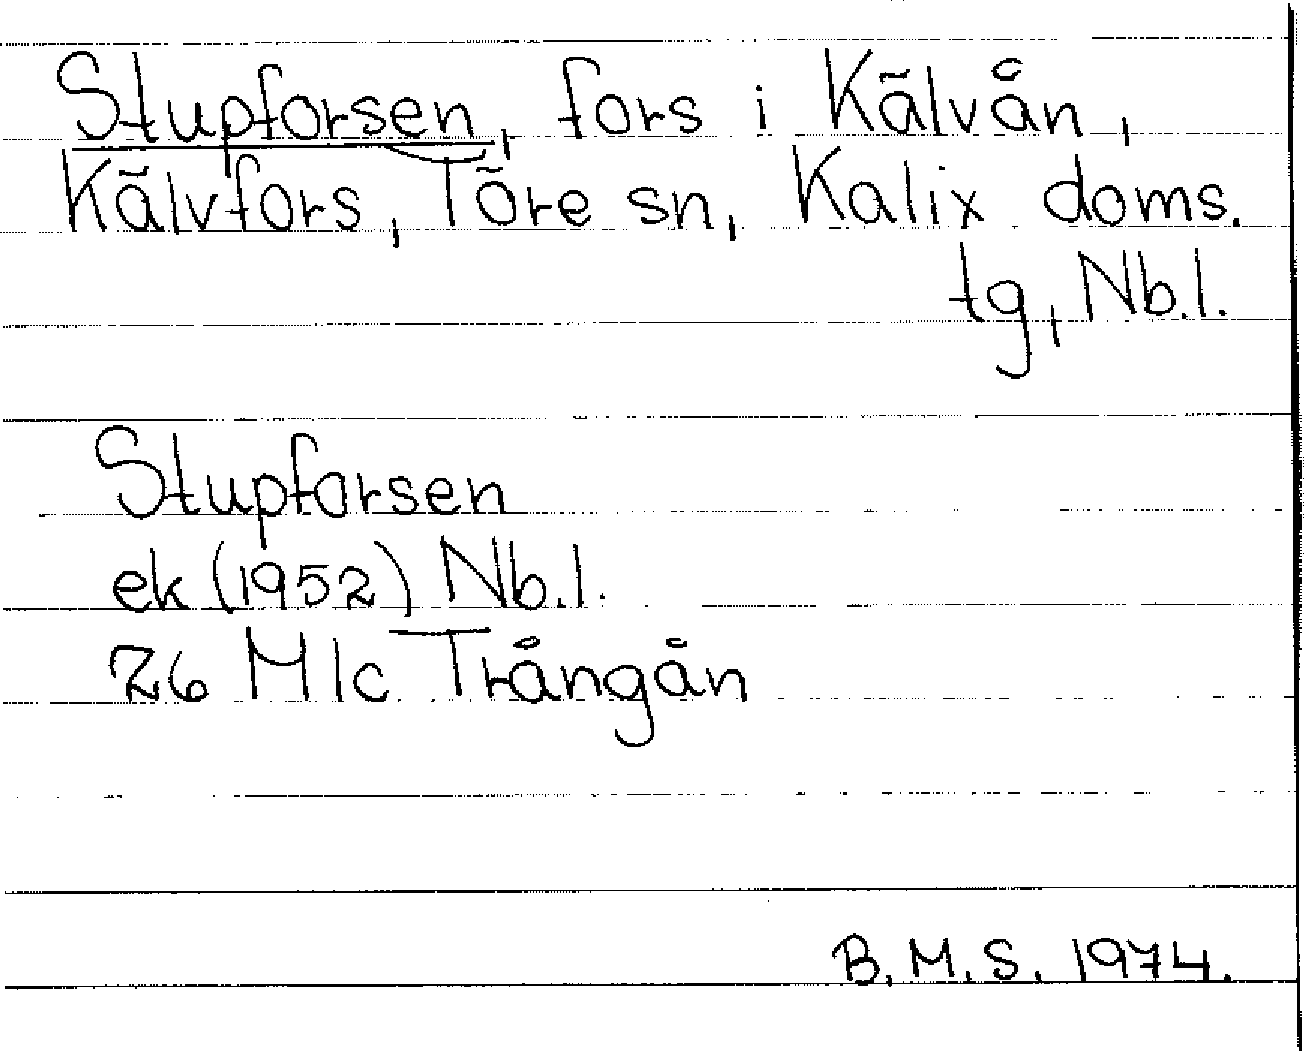 Stupforsen, fors i Kälvån,
Kälvfors, Töre sn, Kalix doms.
tg, Nb.l.
Stupforsen
ek (1952) Nb.l.
26 M1c Trångån
B.M.S. 1974.